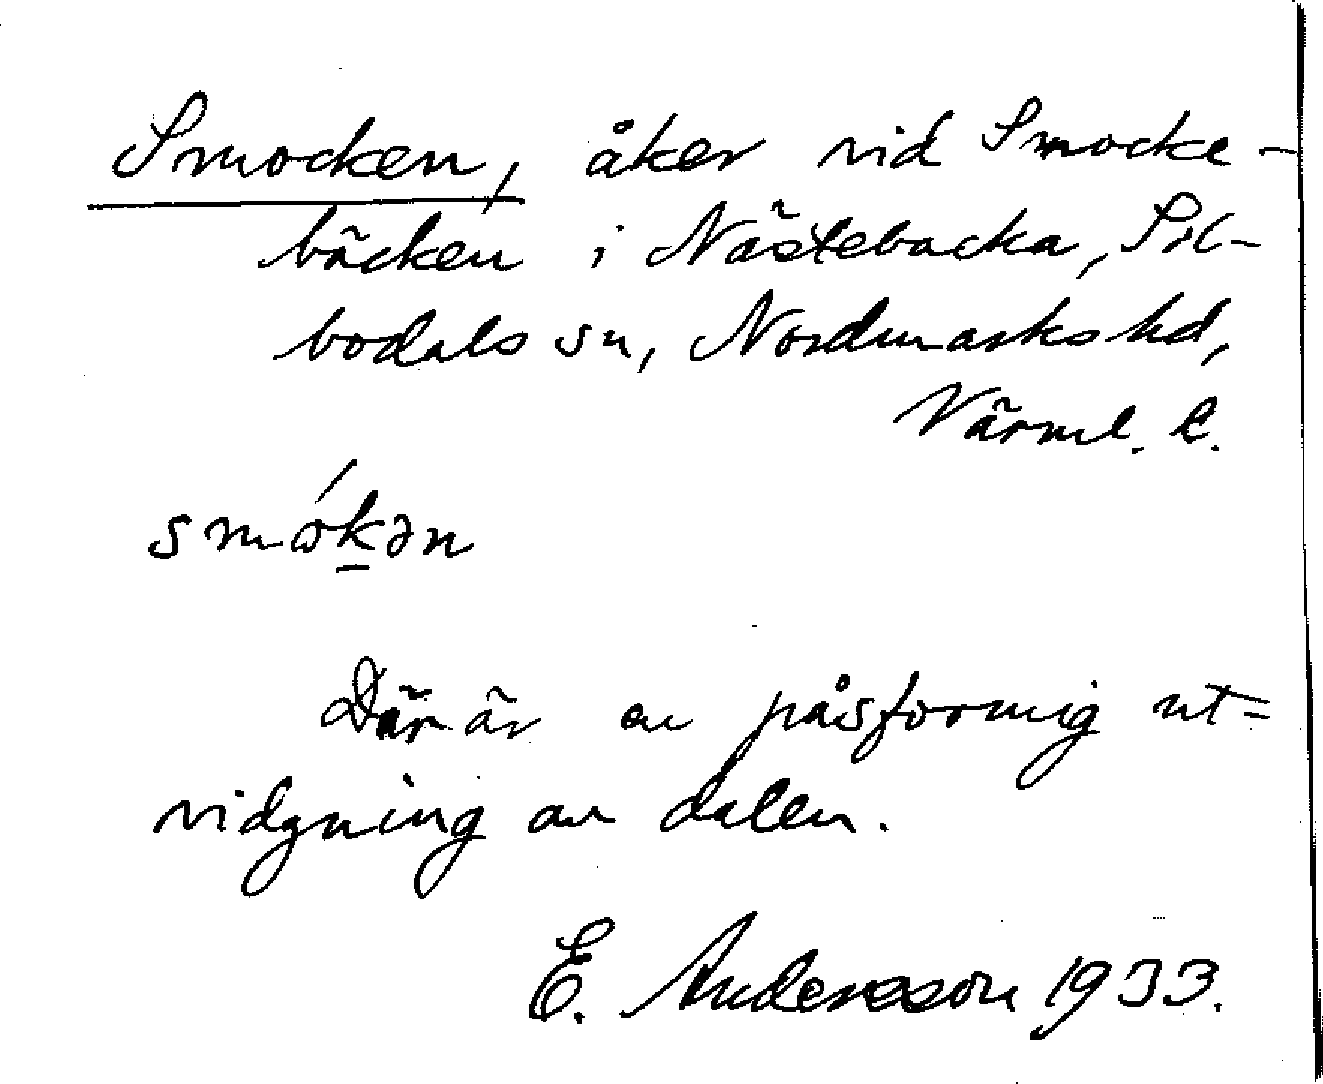 Smocken, åker vid Smocke-
bäcken i Nästebacka, Sil-
bodals sn, Nordmarks hd,
Värml. l.
smɔ́kən
Där är en påsformig ut-
vidgning av dalen.
E. Andersson 1933.